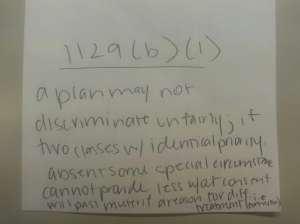 1129(b)(1)
a plan may not
discriminate unfairly; if
two classes w/ identical priority,
absent some special circumstance
cannot provide less w/at consent
will pass muster if a reason for diff.
treatment